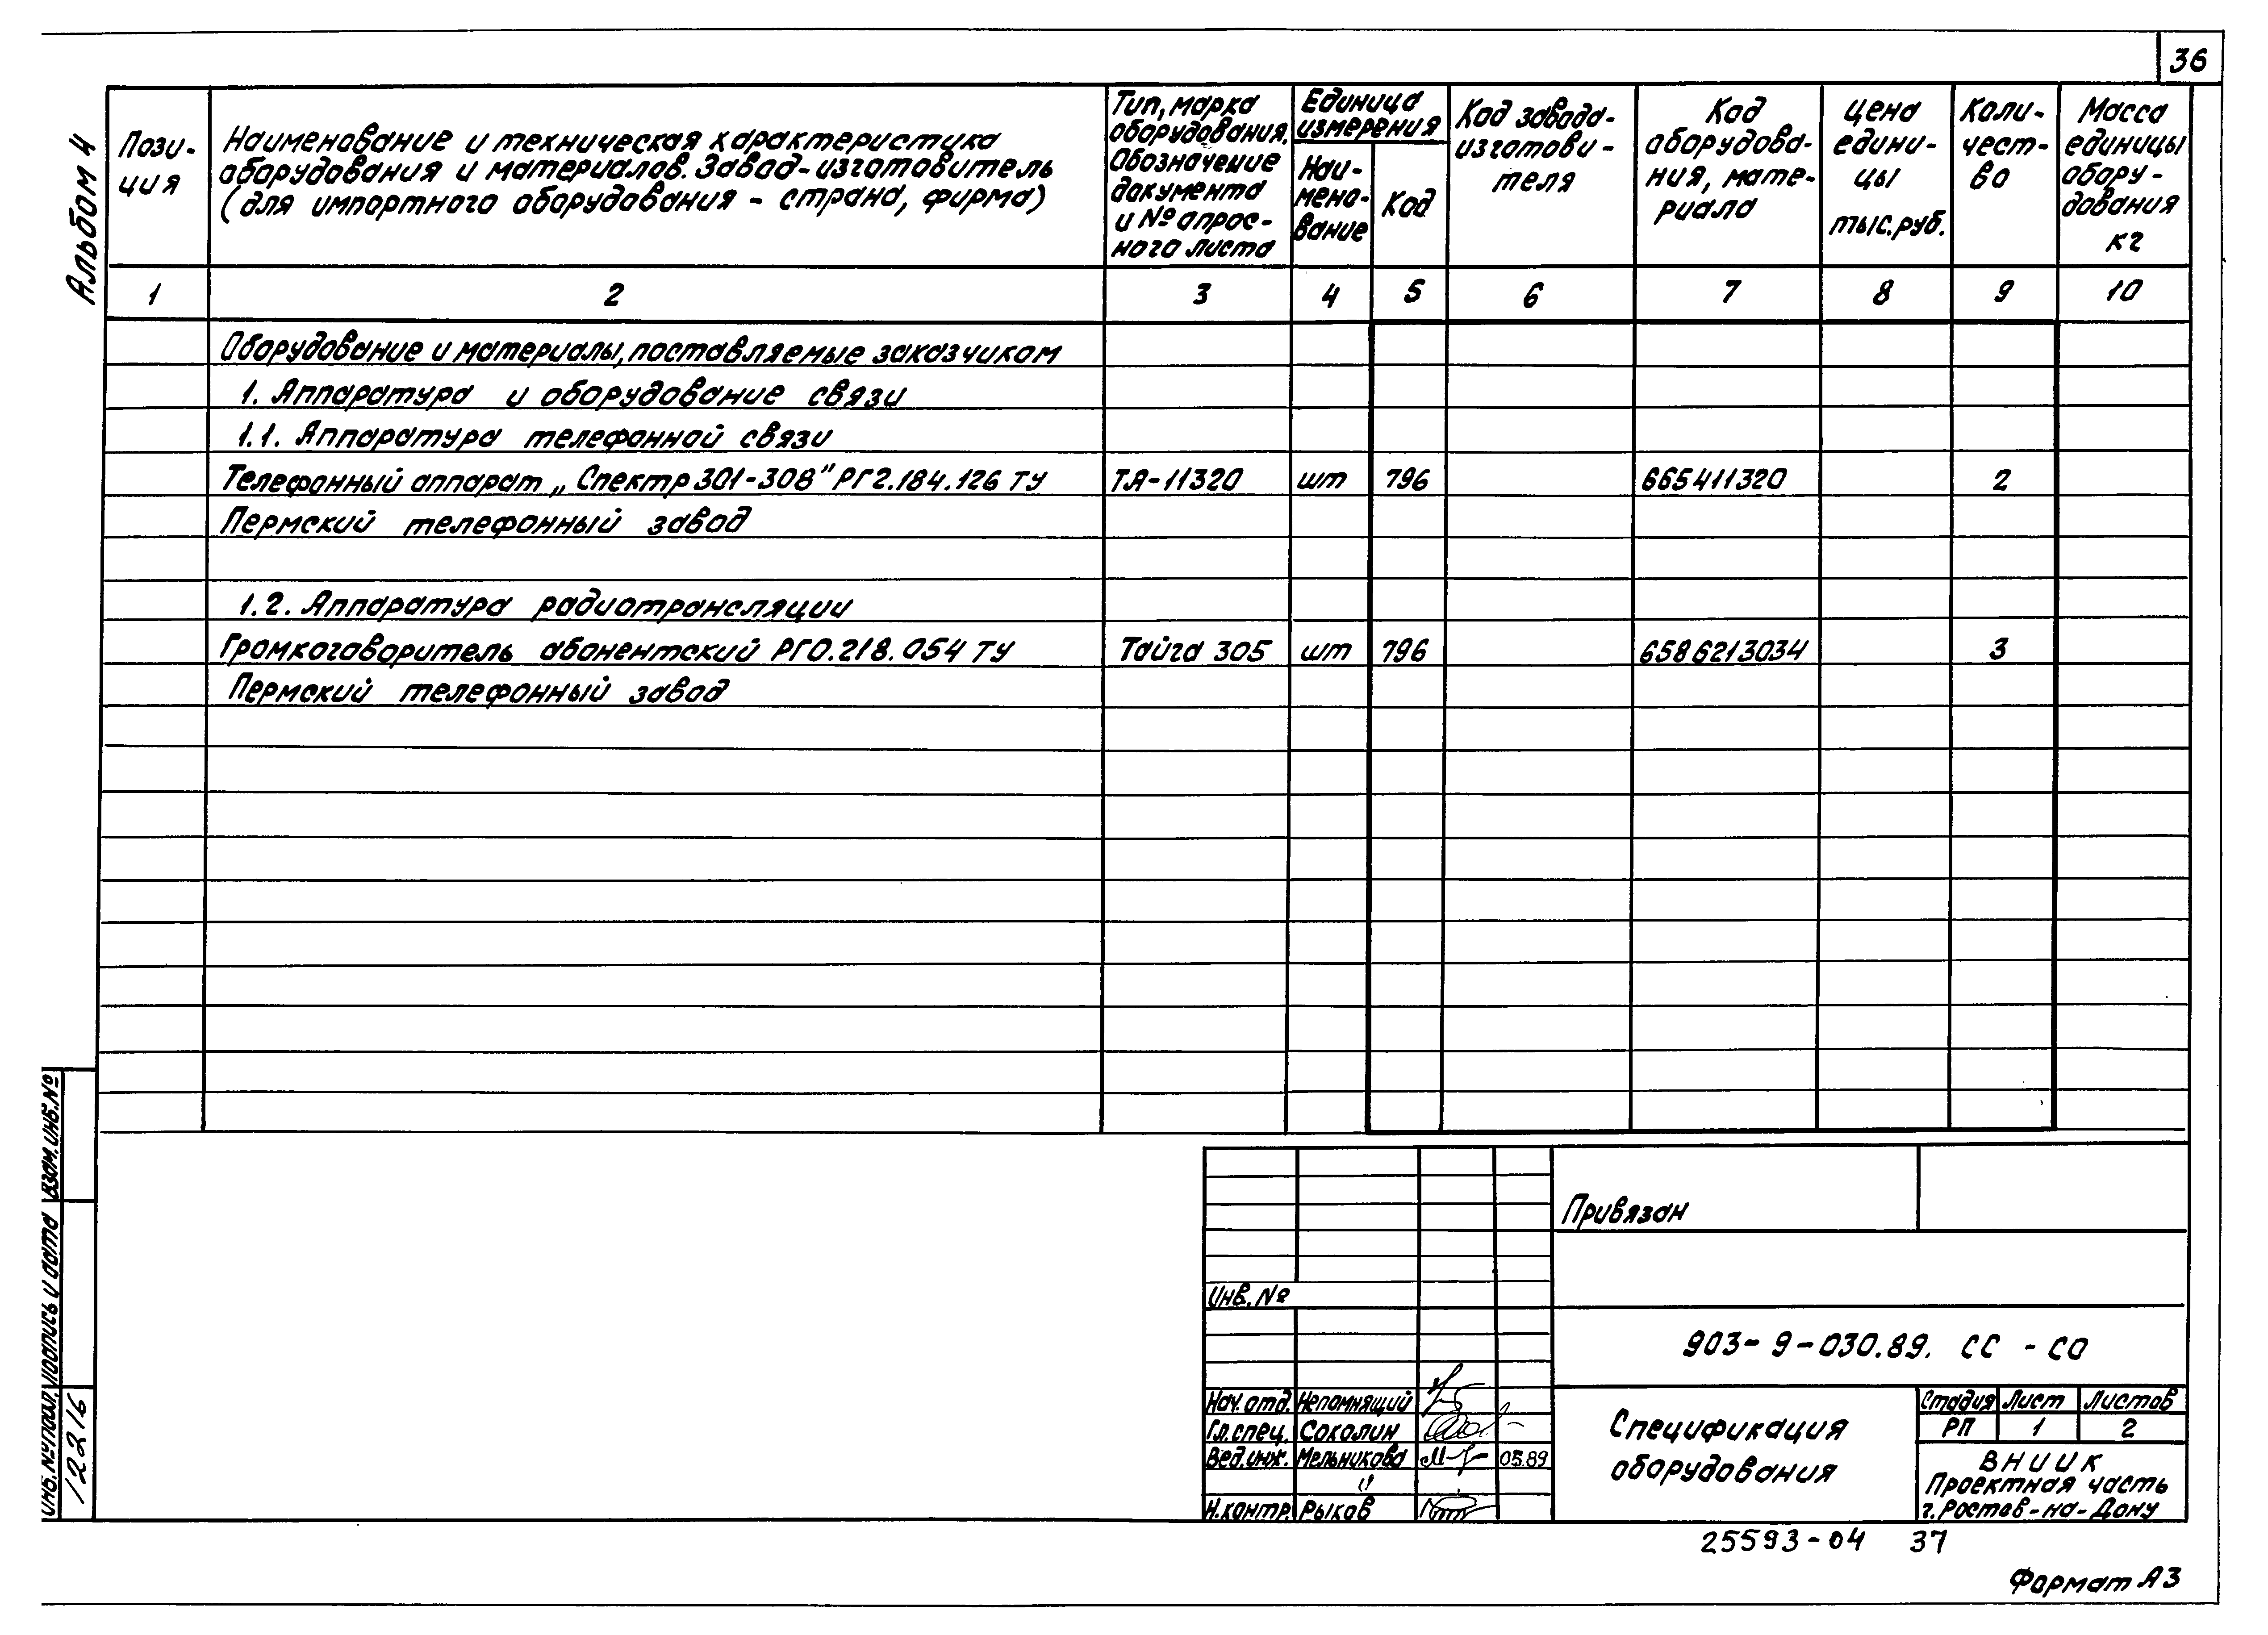 36
Альбом 4
Пози-
ция
Наименование и техническая характеристика
оборудования и материалов. Завод-изготовитель
(для импортного оборудования - страна, фирма)
Тип, марка
оборудования.
Обозначение
документа
и № опрос-
ного листа
Единица
измерения
Наи-
мено-
вание
Код
Код завода-
изготови-
теля
Код
оборудова-
ния, мате-
риала
Цена
едини-
цы
тыс.руб.
Коли-
чест-
во
Масса
единицы
обору-
дования
кг
1 2 3 4 5 6 7 8 9 10
Оборудование и материалы, поставляемые заказчиком
1. Аппаратура и оборудование связи
1.1. Аппаратура телефонной связи
Телефонный аппарат „Спектр 301-308" РГ2.184.126 ТУ ТА-11320 шт 796 665411320 2
Пермский телефонный завод
1.2. Аппаратура радиотрансляции
Громкоговоритель абонентский РГ0.218.054 ТУ Тайга 305 шт 796 6586213034 3
Пермский телефонный завод
Взам.инв.№
Подпись и дата
Инв.№ подл.
12216
Привязан
Инв.№
903-9-030.89. СС - СО
Нач.отд. Непомнящий
Гл.спец. Соколин
Вед.инж. Мельникова 05.89
Н.контр. Рыков
Спецификация
оборудования
Стадия Лист Листов
РП 1 2
ВНИИК
Проектная часть
г.Ростов-на-Дону
25593-04 37
Формат А3